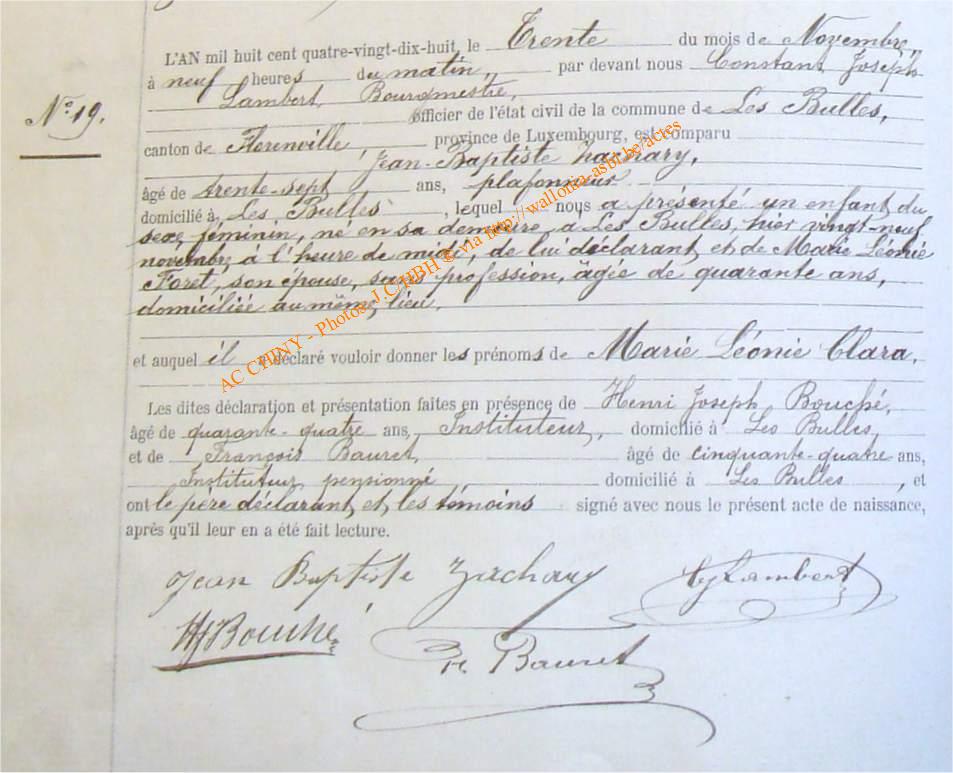 L'AN mil huit cent quatre-vingt-dix-huit, le Trente du mois de Novembre,
à neuf heures du matin, par devant nous Constant Joseph
Lambert, Bourgmestre,
N° 19.
Officier de l'état civil de la commune de Les Bulles,
canton de Florenville, province de Luxembourg, est comparu
Jean-Baptiste Zachary,
âgé de trente-sept ans, plafonneur
domicilié à Les Bulles, lequel nous a présenté un enfant du
sexe féminin, né en sa demeure, à Les Bulles, hier vingt-neuf
novembre à l'heure de midi, de lui déclarant et de Marie Léonie
Foret, son épouse, sans profession, âgée de quarante ans,
domiciliée au même lieu.
et auquel il a déclaré vouloir donner les prénoms de Marie Léonie Clara.
Les dites déclaration et présentation faites en présence de Henri Joseph Bouché,
âgé de quarante-quatre ans, Instituteur, domicilié à Les Bulles,
et de François Bauret, âgé de cinquante-quatre ans,
Instituteur pensionné domicilié à Les Bulles, et
ont le père déclarant et les témoins signé avec nous le présent acte de naissance,
après qu'il leur en a été fait lecture.
Jean Baptiste Zachary CJ Lambert
HJ Bouché
Bauret
AC CHINY - Photos J.C HBH © via http://wallonia-asbl.be/actes